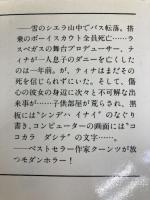 ――雪のシエラ山中でバス転落。搭
乗のボーイスカウト全員死亡……ラ
スベガスの舞台プロデューサー、テ
ィナが一人息子のダニーを亡くした
のは一年前。が、ティナはまだその
死を信じられずにいた。そして、傷
心の彼女の身辺に次々と不可解な出
来事が……子供部屋が荒らされ、黒
板には“シンデハ イナイ”のなぐり
書き、コンピューターの画面には“コ
コカラ ダシテ”の文字……。
――ベストセラー作家クーンツが放
つモダンホラー！